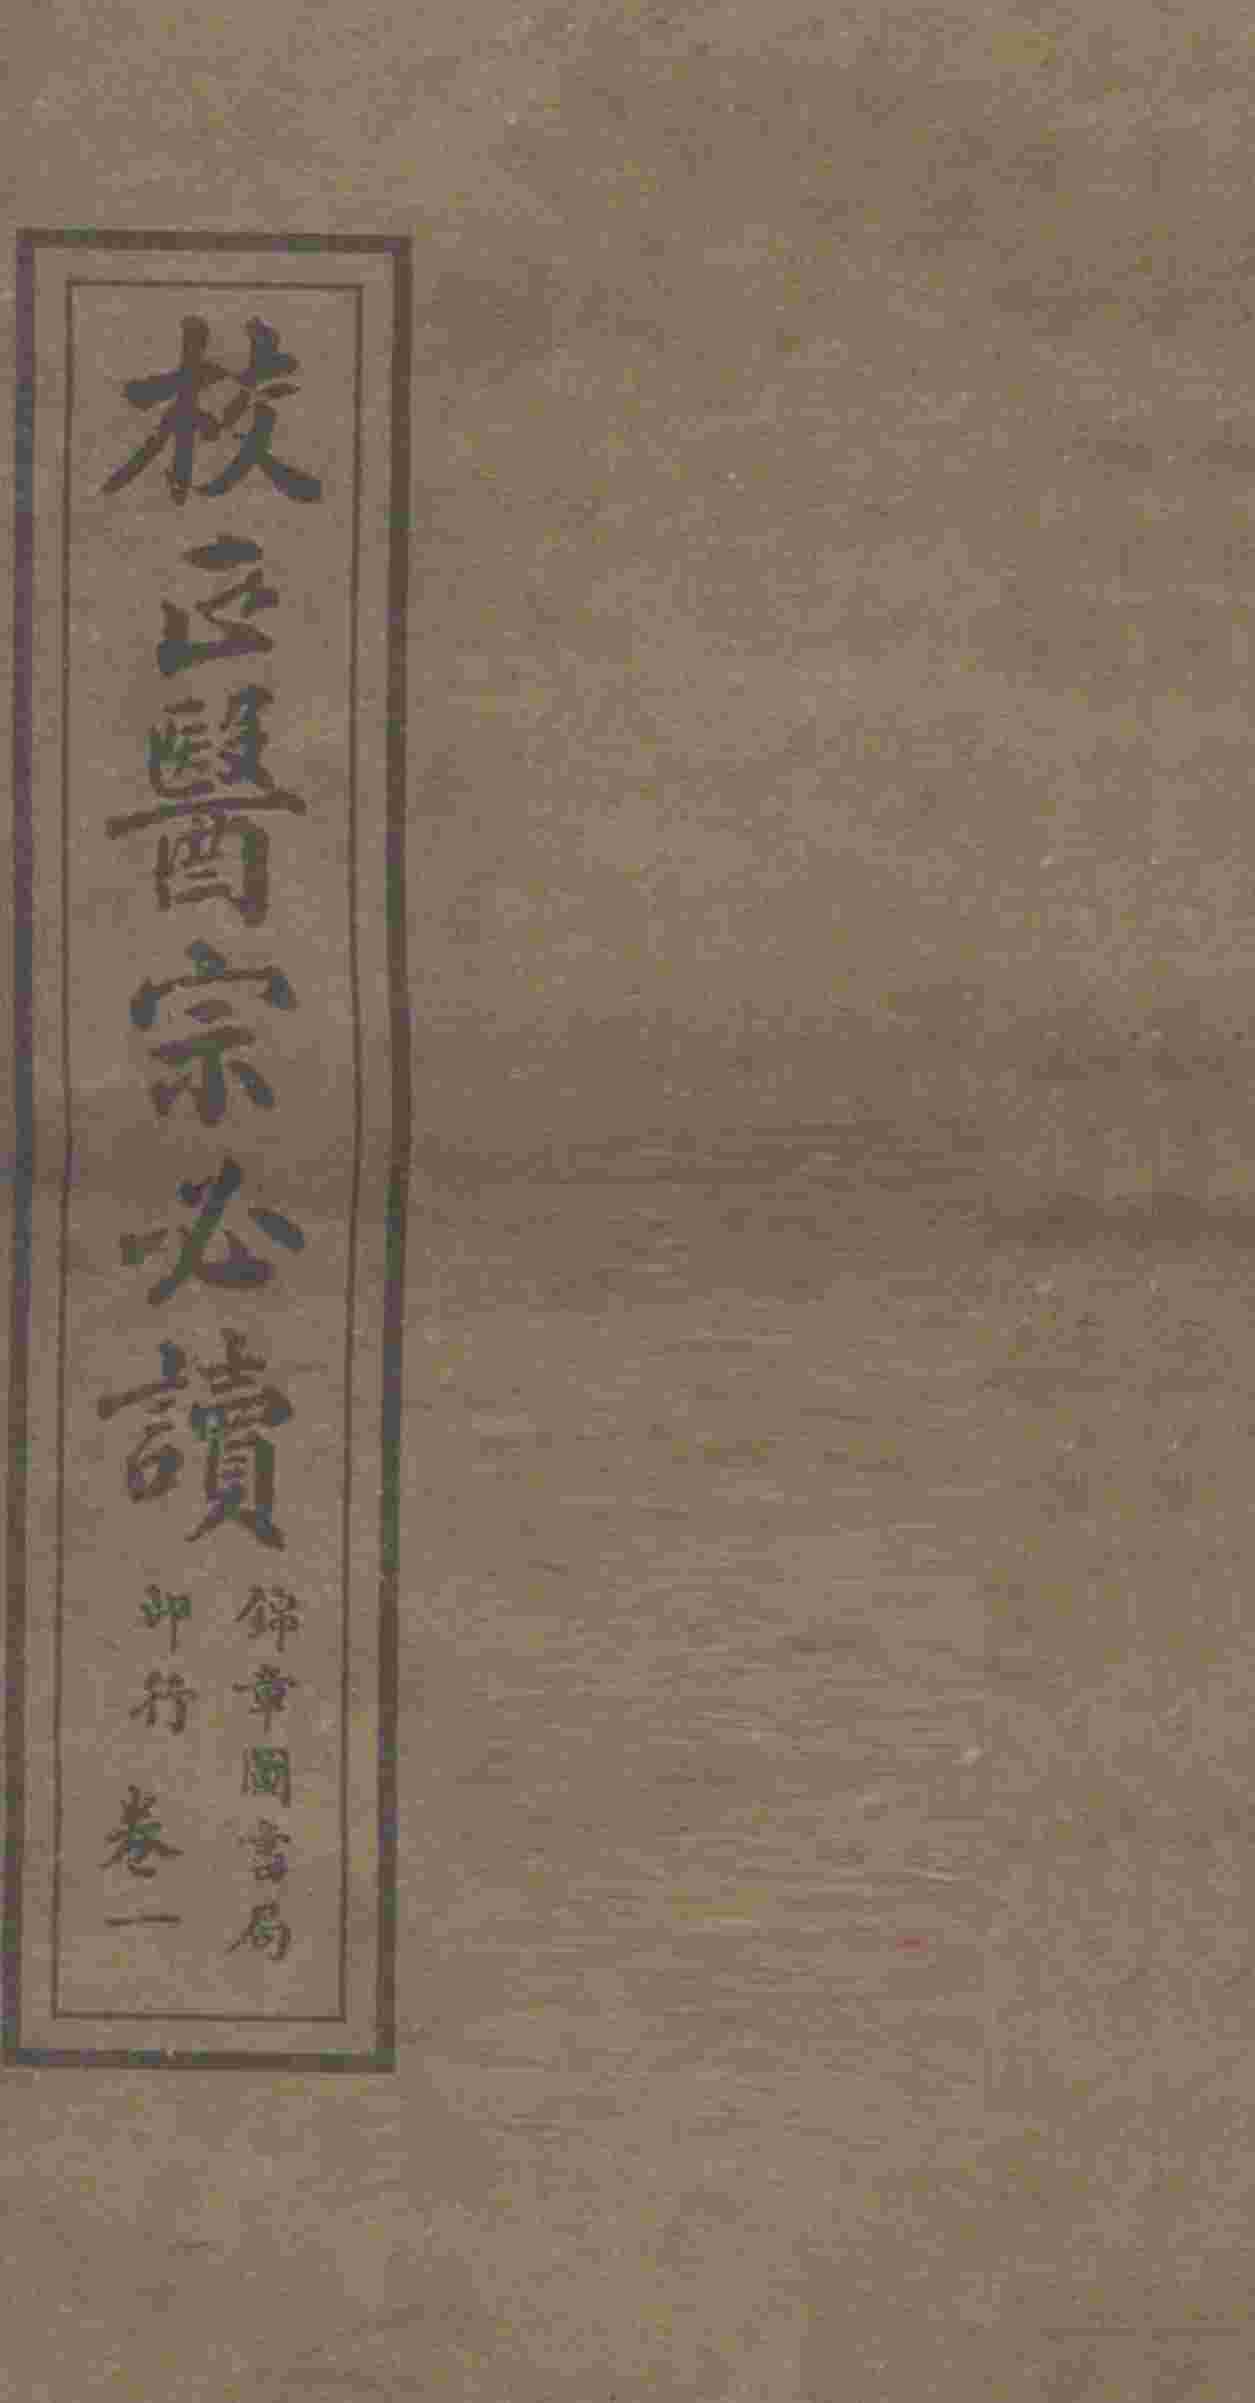 校正醫宗必讀
錦章圖書局
印行 卷一